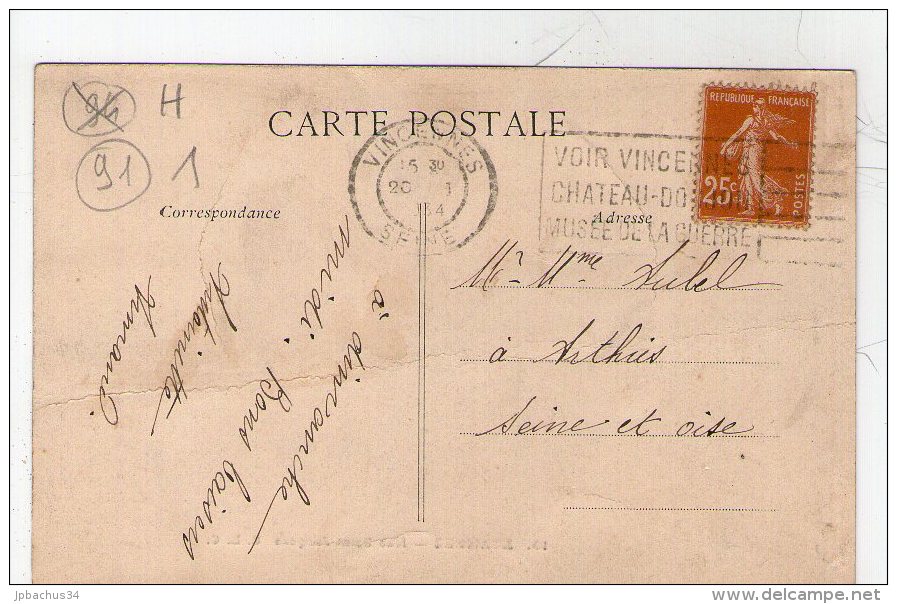 94 H
91 1
CARTE POSTALE
VINCENNES
15 30
20 1
34
SEINE
VOIR VINCENNES
CHATEAU-DO
MUSÉE DE LA GUERRE
REPUBLIQUE FRANÇAISE
25c
POSTES
Correspondance
Adresse
à dimanche
midi. Bons baisers
Antoinette
Armand.
Mr Mme Aubel
à Arthies
Seine et oise
jpbachus34
www.delcampe.net